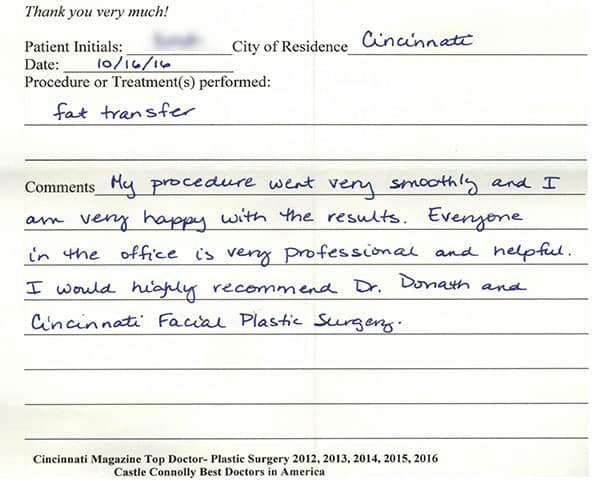 Thank you very much!
Patient Initials: City of Residence Cincinnati
Date: 10/16/16
Procedure or Treatment(s) performed:
fat transfer
Comments My procedure went very smoothly and I
am very happy with the results. Everyone
in the office is very professional and helpful.
I would highly recommend Dr. Donath and
Cincinnati Facial Plastic Surgery.
Cincinnati Magazine Top Doctor- Plastic Surgery 2012, 2013, 2014, 2015, 2016
Castle Connolly Best Doctors in America